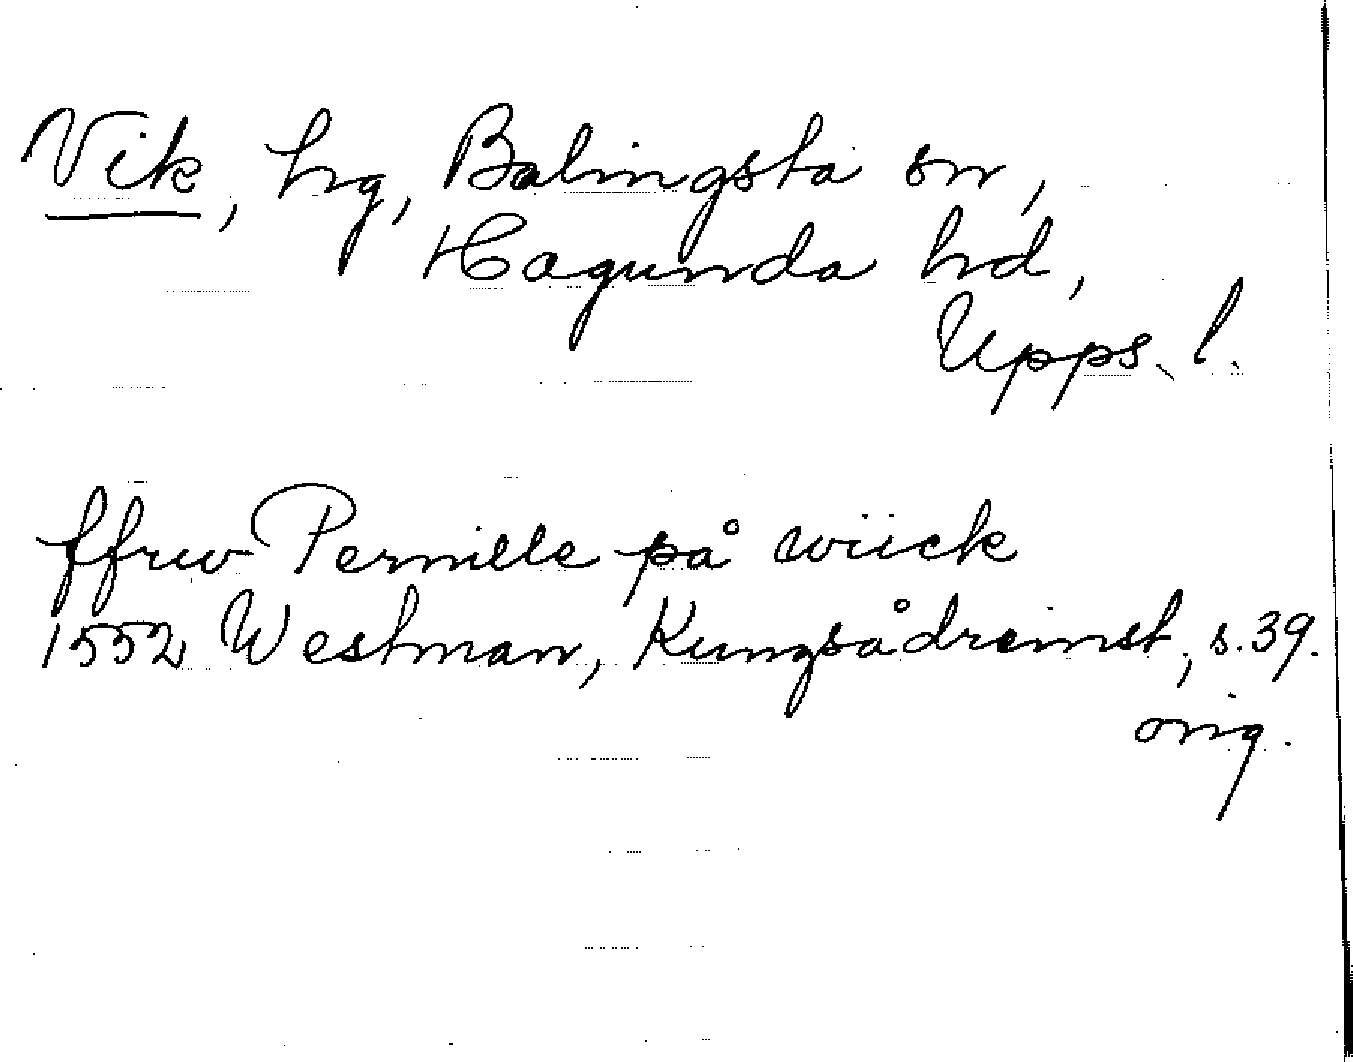 Vik, hg, Balingsta sn,
Hagunda hd,
Upps. l.
ffrw Pernille på wiick
1552 Westman, Kungsådreinst, s. 39.
orig.